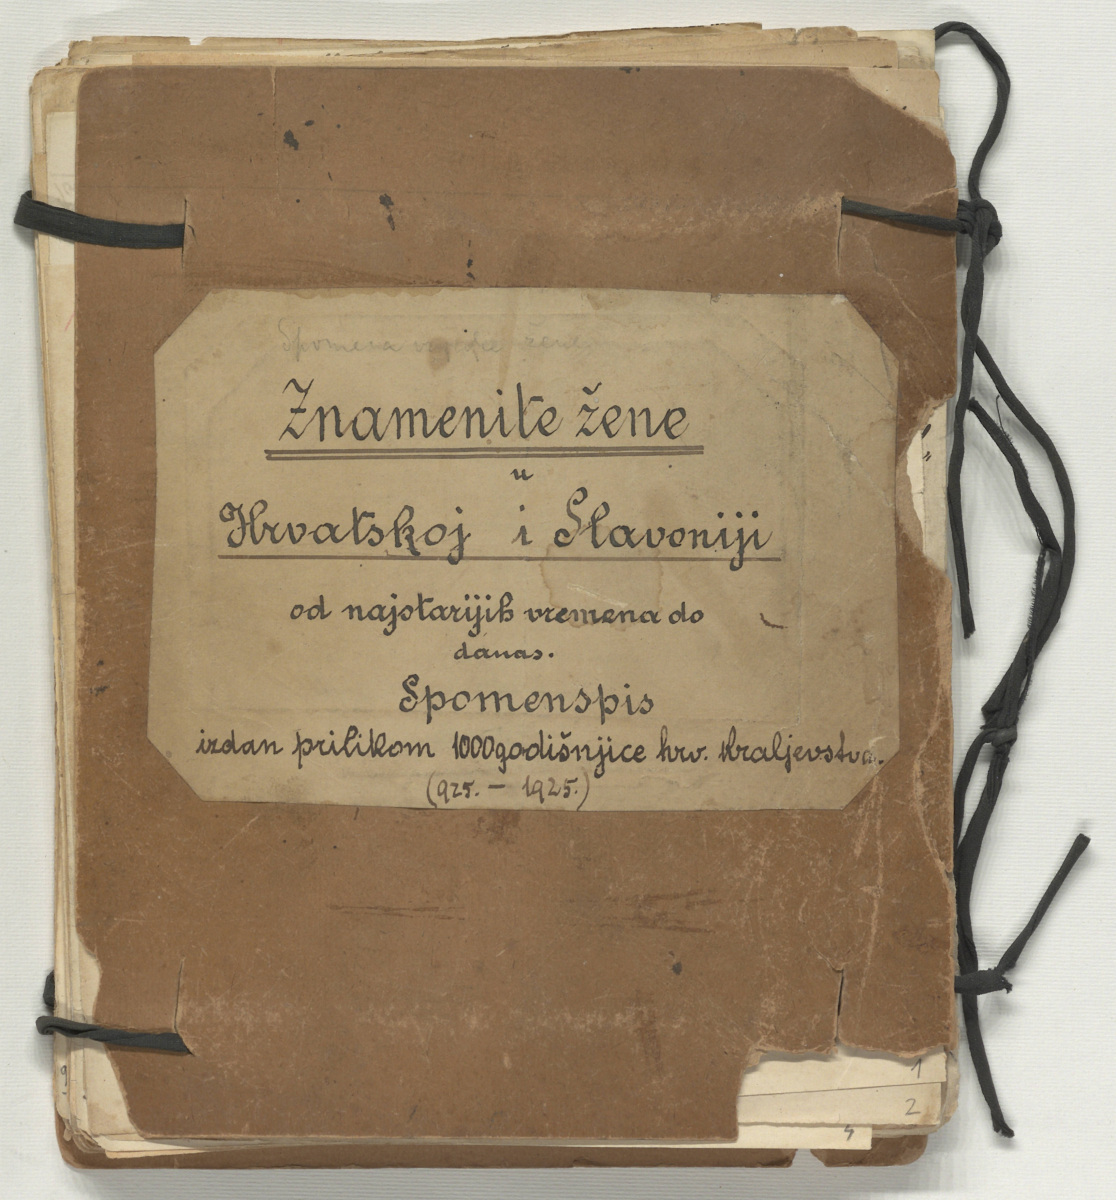 Spomena
Znamenite žene
u
Hrvatskoj i Slavoniji
od najstarijih vremena do
danas.
Spomenspis
izdan prilikom 1000godišnjice hrv. kraljevstva.
(925. – 1925.)
9
1
2